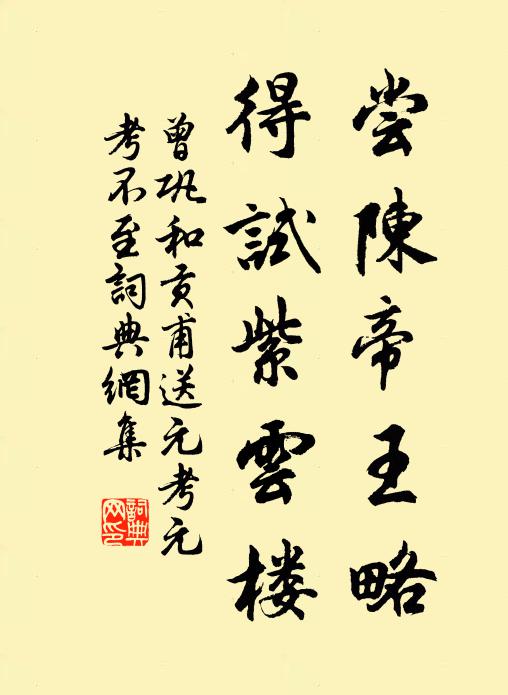 尝陳帝王略
得試紫雲楼
曾巩和贡甫送元考元
考不至詞典網集
詞典网印